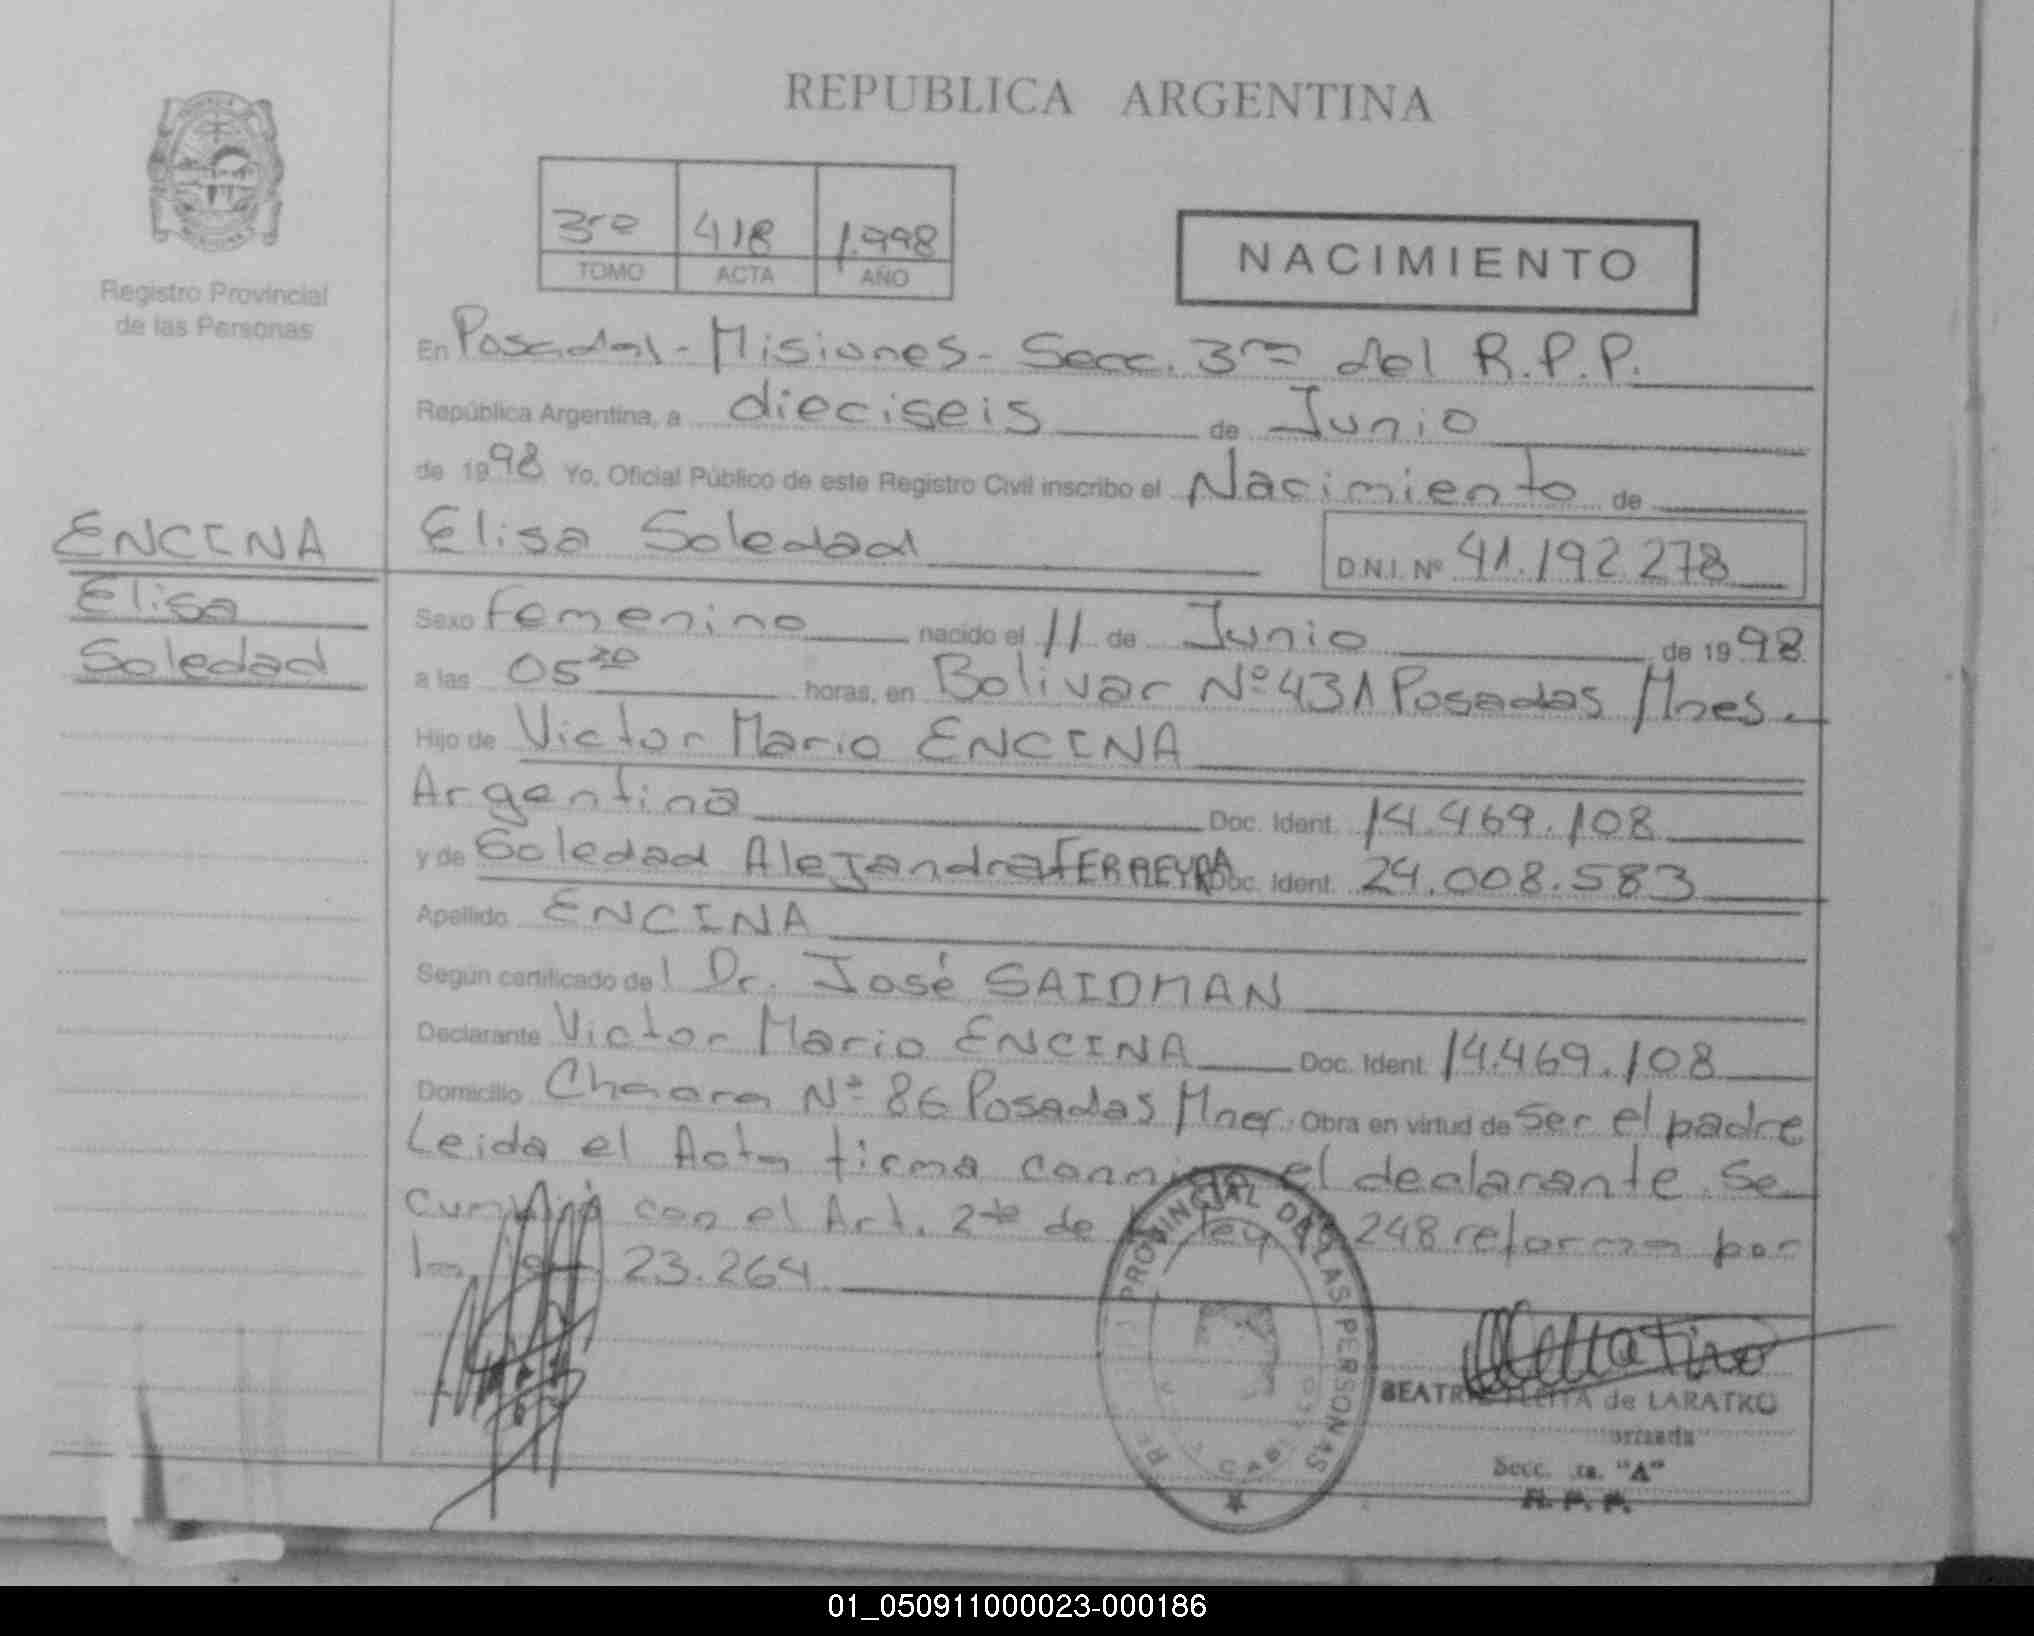 REPUBLICA ARGENTINA
Registro Provincial
de las Personas
3ra 418 1.998
TOMO ACTA AÑO
NACIMIENTO
En Posadas - Misiones - Secc. 3ra del R.P.P.
República Argentina, a dieciseis de Junio
de 1998 Yo, Oficial Público de este Registro Civil inscribo el Nacimiento de
ENCINA
Elisa
Soledad
Elisa Soledad D.N.I. Nº 41.192.278
Sexo Femenino nacido el 11 de Junio de 1998
a las 05 30 horas, en Bolivar Nº 431 Posadas Mnes.
Hijo de Victor Mario ENCINA
Argentina Doc. Ident. 14.469.108
y de Soledad Alejandra FERREYRA Doc. Ident. 24.008.583
Apellido ENCINA
Según certificado del Dr. José SAIDMAN
Declarante Victor Mario ENCINA Doc. Ident. 14.469.108
Domicilio Chacra Nº 86 Posadas Mnes. Obra en virtud de ser el padre
Leida el Acta firma conmigo el declarante. Se
con el Art. 2do de Ley 248 reforma por
la 23.264
PROVINCIAL DE LAS PERSONAS
BEATRIZ de LARATRO
Secc. "A"
R. P. P.
01_050911000023-000186